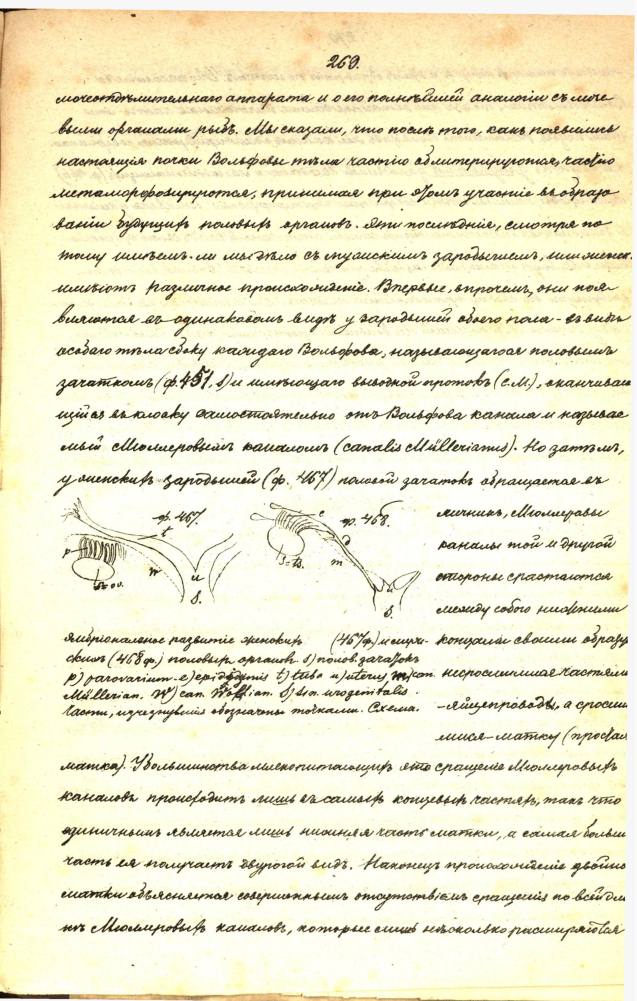 269.
мочеотдѣлительнаго аппарата и о его полнѣйшей аналогіи съ моче
выми органами рыбъ. Мы сказали, что послѣ того, какъ появились
настоящія почки Вольфовы тѣла частію облитерируются, частію
метаморфозируются, принимая при этомъ участіе въ образо
ваніи будущихъ половыхъ органовъ. Эти послѣдніе, смотря по
тому имѣемъ-ли мы дѣло съ мужскимъ зародышемъ, или женск.
имѣютъ различное происхожденіе. Впервые, впрочемъ, они поя
вляются въ одинаковомъ видѣ у зародышей обоего пола - въ видѣ
особаго тѣла сбоку каждаго Вольфова, называющагося половымъ
зачаткомъ (ф. 451. s) и имѣющаго выводной протокъ (с.М.), оканчиваю
щійся въ клоаку самостоятельно отъ Вольфова канала и называе
мый Мюллеровымъ каналомъ (canalis Müllerianus). Но затѣмъ,
у женскихъ зародышей (ф. 467) половой зачатокъ обращается въ
ф. 467.
t
p
s=ov.
w
u
S.
ф. 468.
e
d
s=ts.
m
u
S.
яичникъ, Мюллеровы
каналы той и другой
стороны срастаются
между собою нижними
концами своими образу
несросшимися частями
-яйцепроводы, а сросши
мися-матку (простая
Эмбріональное развитіе женскихъ (467ф.) и мужс-
скихъ (468ф.) половыхъ органовъ. s) полов. зачатокъ
p) parovarium e) epididymis t) tuba u) uterus m) can.
Müllerian. W) can. Wolfian. S) sin. urogenitalis.
Части, изчезнувшія обозначены точками. Схема.
матка). У большинства млекопитающихъ это сращеніе Мюллеровыхъ
каналовъ происходитъ лишь въ самыхъ концевыхъ частяхъ, такъ что
единичнымъ является лишь нижняя часть матки, а самая больш
часть ея получаетъ двурогой видъ. Наконецъ происхожденіе двойно
матки объясняется совершеннымъ отсутствіемъ сращенія по всей дли
нѣ Мюллеровыхъ каналовъ, которые лишь нѣсколько расширяются